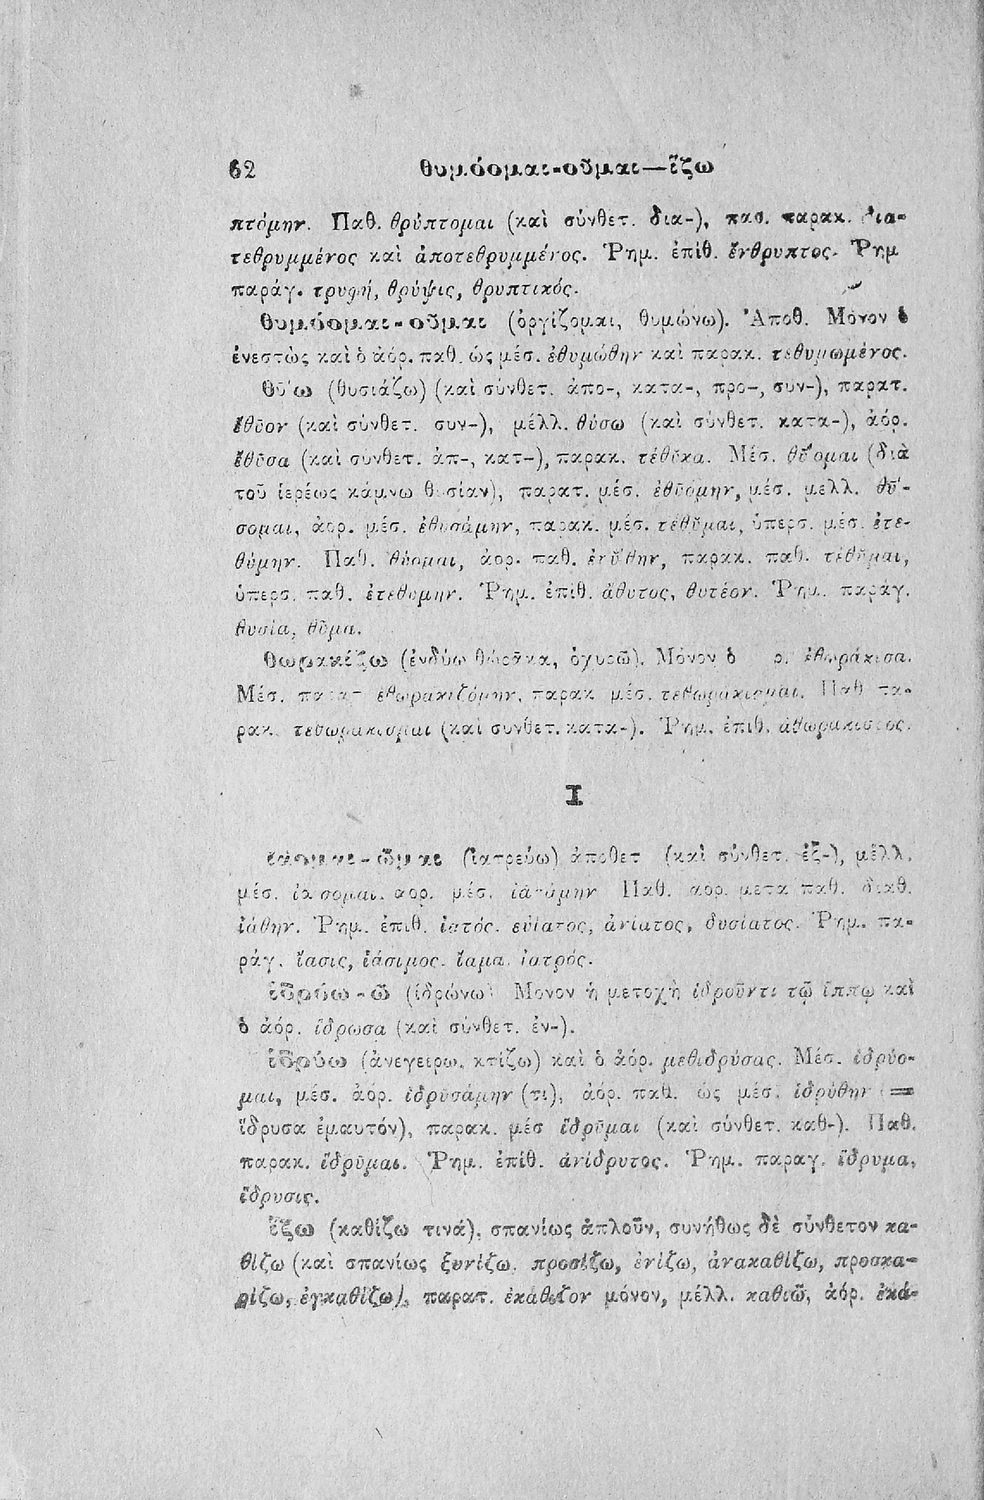 62 θυμόομαι-οῦμαι—ἵζω
πτόμην. Παθ. θρύπτομαι (καὶ σύνθετ. δια-), παθ. παρακ. δια-
τεθρυμμένος καὶ ἀποτεθρυμμένος. Ῥημ. ἐπίθ. ἔνθρυπτος. Ῥημ
παράγ. τρυφή, θρύψις, θρυπτικός.
θυμόομαι-οῦμαι (ὀργίζομαι, θυμώνω). Ἀποθ. Μόνον ὁ
ἐνεστὼς καὶ ὁ ἀόρ. παθ. ὡς μέσ. ἐθυμώθην καὶ παρακ. τεθυμωμένος.
θύω (θυσιάζω) (καὶ σύνθετ. ἀπο-, κατα-, προ-, συν-), παρατ.
ἔθυον (καὶ σύνθετ. συν-), μέλλ. θύσω (καὶ σύνθετ. κατα-), ἀόρ.
ἔθυσα (καὶ σύνθετ. ἀπ-, κατ-), παρακ. τέθυκα. Μέσ. θύομαι (διὰ
τοῦ ἱερέως κάμνω θυσίαν), παρατ. μέσ. ἐθυόμην, μέσ. μελλ. θύ-
σομαι, ἀορ. μέσ. ἐθυσάμην, παρακ. μέσ. τέθυμαι, ὑπερσ. μέσ. ἐτε-
θύμην. Παθ. θύομαι, ἀορ. παθ. ἐτύθην, παρακ. παθ. τέθυμαι,
ὑπερσ. παθ. ἐτεθύμην. Ῥημ. ἐπίθ. ἄθυτος, θυτέον. Ῥημ. παράγ.
θυσία, θῦμα.
θωρακίζω (ἐνδύω θώρακα, ὀχυρῶ). Μόνον ὁ ἐθωράκισα.
Μέσ. παρατ ἐθωρακιζόμην, παρακ μέσ. τεθωράκισμαι. Παθ πα-
ρακ. τεθωράκισμαι (καὶ συνθετ. κατα-). Ῥημ. ἐπίθ. ἀθωράκιστος.
Ι
ἰάομαι-ῶμαι (ἰατρεύω) ἀποθετ (καὶ σύνθετ. ἐξ-), μέλλ.
μέσ. ἰάσομαι. αορ. μέσ. ἰασάμην Παθ. αορ. μετα παθ. διαθ.
ἰάθην. Ῥημ. ἐπιθ. ἰατός. εὐίατος, ἀνίατος, δυσίατος. Ῥημ. πα-
ράγ. ἴασις, ἰάσιμος. ἴαμα. ἰατρός.
ἱδρόω-ῶ (ἱδρώνω) Μονον ἡ μετοχὴ ἱδροῦντι τῷ ἵππῳ καὶ
ὁ ἀόρ. ἵδρωσα (καὶ σύνθετ. ἐν-).
ἱδρύω (ἀνεγείρω. κτίζω) καὶ ὁ ἀόρ. μεθιδρύσας. Μέσ. ἱδρύο-
μαι, μέσ. ἀόρ. ἱδρυσάμην (τι), ἀόρ. παθ. ὡς μέσ. ἱδρύθην (=
ἵδρυσα ἐμαυτόν), παρακ. μέσ ἵδρυμαι (καὶ σύνθετ. καθ-). Παθ.
παρακ. ἵδρυμαι. Ῥημ. ἐπίθ. ἀνίδρυτος. Ῥημ. παραγ. ἵδρυμα,
ἵδρυσις.
ἵζω (καθίζω τινά), σπανίως ἁπλοῦν, συνήθως δὲ σύνθετον κα-
θίζω (καὶ σπανίως ξυνίζω, προσίζω, ἐνίζω, ἀνακαθίζω, προσκα-
θίζω, ἐγκαθίζω), παρατ. ἐκάθιζον μόνον, μέλλ. καθιῶ, ἀόρ. ἐκά-